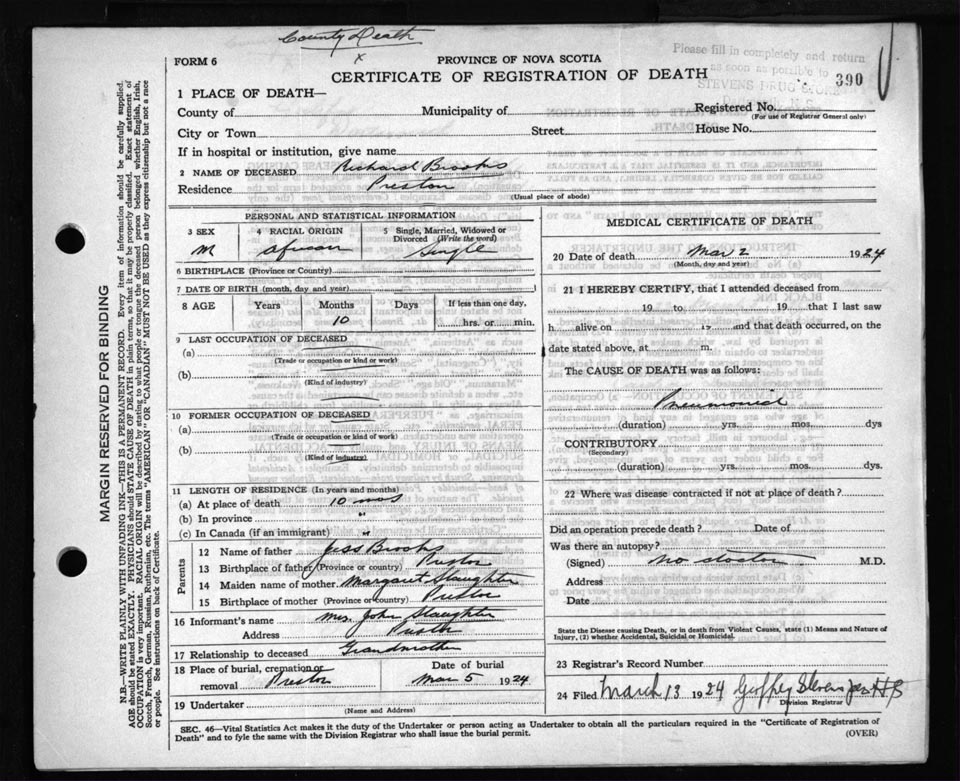 County Death
x
FORM 6
PROVINCE OF NOVA SCOTIA
CERTIFICATE OF REGISTRATION OF DEATH
Please fill in completely and return
as soon as possible to
STEVENS DRUG STORE
N.S.
390
1 PLACE OF DEATH—
County of Municipality of Registered No.
(For use of Registrar General only)
City or Town Street House No.
If in hospital or institution, give name
2 NAME OF DECEASED Richard Brooks
Residence Preston
(Usual place of abode)
PERSONAL AND STATISTICAL INFORMATION
3 SEX M
4 RACIAL ORIGIN African
5 Single, Married, Widowed or Divorced (Write the word) Single
6 BIRTHPLACE (Province or Country)
7 DATE OF BIRTH (month, day and year)
8 AGE Years Months Days If less than one day,
10 hrs. or min.
9 LAST OCCUPATION OF DECEASED
(a)
(Trade or occupation or kind or work)
(b)
(Kind of industry)
10 FORMER OCCUPATION OF DECEASED
(a)
(Trade or occupation or kind or work)
(b)
(Kind of industry)
11 LENGTH OF RESIDENCE (In years and months)
(a) At place of death 10 mos
(b) In province "
(c) In Canada (if an immigrant) "
Parents
12 Name of father Jess Brooks
13 Birthplace of father (Province or country) Preston
14 Maiden name of mother Margaret Slaughter
15 Birthplace of mother (Province or country) Preston
16 Informant's name Mrs John Slaughter
Address Preston
17 Relationship to deceased Grandmother
18 Place of burial, cremation or Date of burial
removal Preston Mar 5 1924
19 Undertaker
(Name and Address)
MEDICAL CERTIFICATE OF DEATH
20 Date of death Mar 2 1924
(Month, day and year)
21 I HEREBY CERTIFY, that I attended deceased from
19 to 19 that I last saw
h alive on 19 and that death occurred, on the
date stated above, at m.
The CAUSE OF DEATH was as follows:
Pneumonia
(duration) yrs. mos. dys
CONTRIBUTORY
(Secondary)
(duration) yrs. mos. dys.
22 Where was disease contracted if not at place of death?
Did an operation precede death? Date of
Was there an autopsy?
(Signed) no doctor M.D.
Address
Date
State the Disease causing Death, or in death from Violent Causes, state (1) Means and Nature of
Injury, (2) whether Accidental, Suicidal or Homicidal.
23 Registrar's Record Number
24 Filed March 13 1924 Geoffrey Stevens
Division Registrar
SEC. 46—Vital Statistics Act makes it the duty of the Undertaker or person acting as Undertaker to obtain all the particulars required in the "Certificate of Registration of
Death" and to fyle the same with the Division Registrar who shall issue the burial permit.
(OVER)
MARGIN RESERVED FOR BINDING
N.B.—WRITE PLAINLY WITH UNFADING INK—THIS IS A PERMANENT RECORD. Every item of information should be carefully supplied.
AGE should be stated EXACTLY. PHYSICIANS should STATE CAUSE OF DEATH in plain terms, so that it may be properly classified. Exact statement of
OCCUPATION is very important. RACIAL ORIGIN will be described by stating to what people or tongue the deceased person belonged whether English, Irish,
Scotch, French, German, Russian, Ruthenian, etc. The terms "AMERICAN" OR "CANADIAN" MUST NOT BE USED as they express citizenship but not a race
or people. See instructions on back of Certificate.